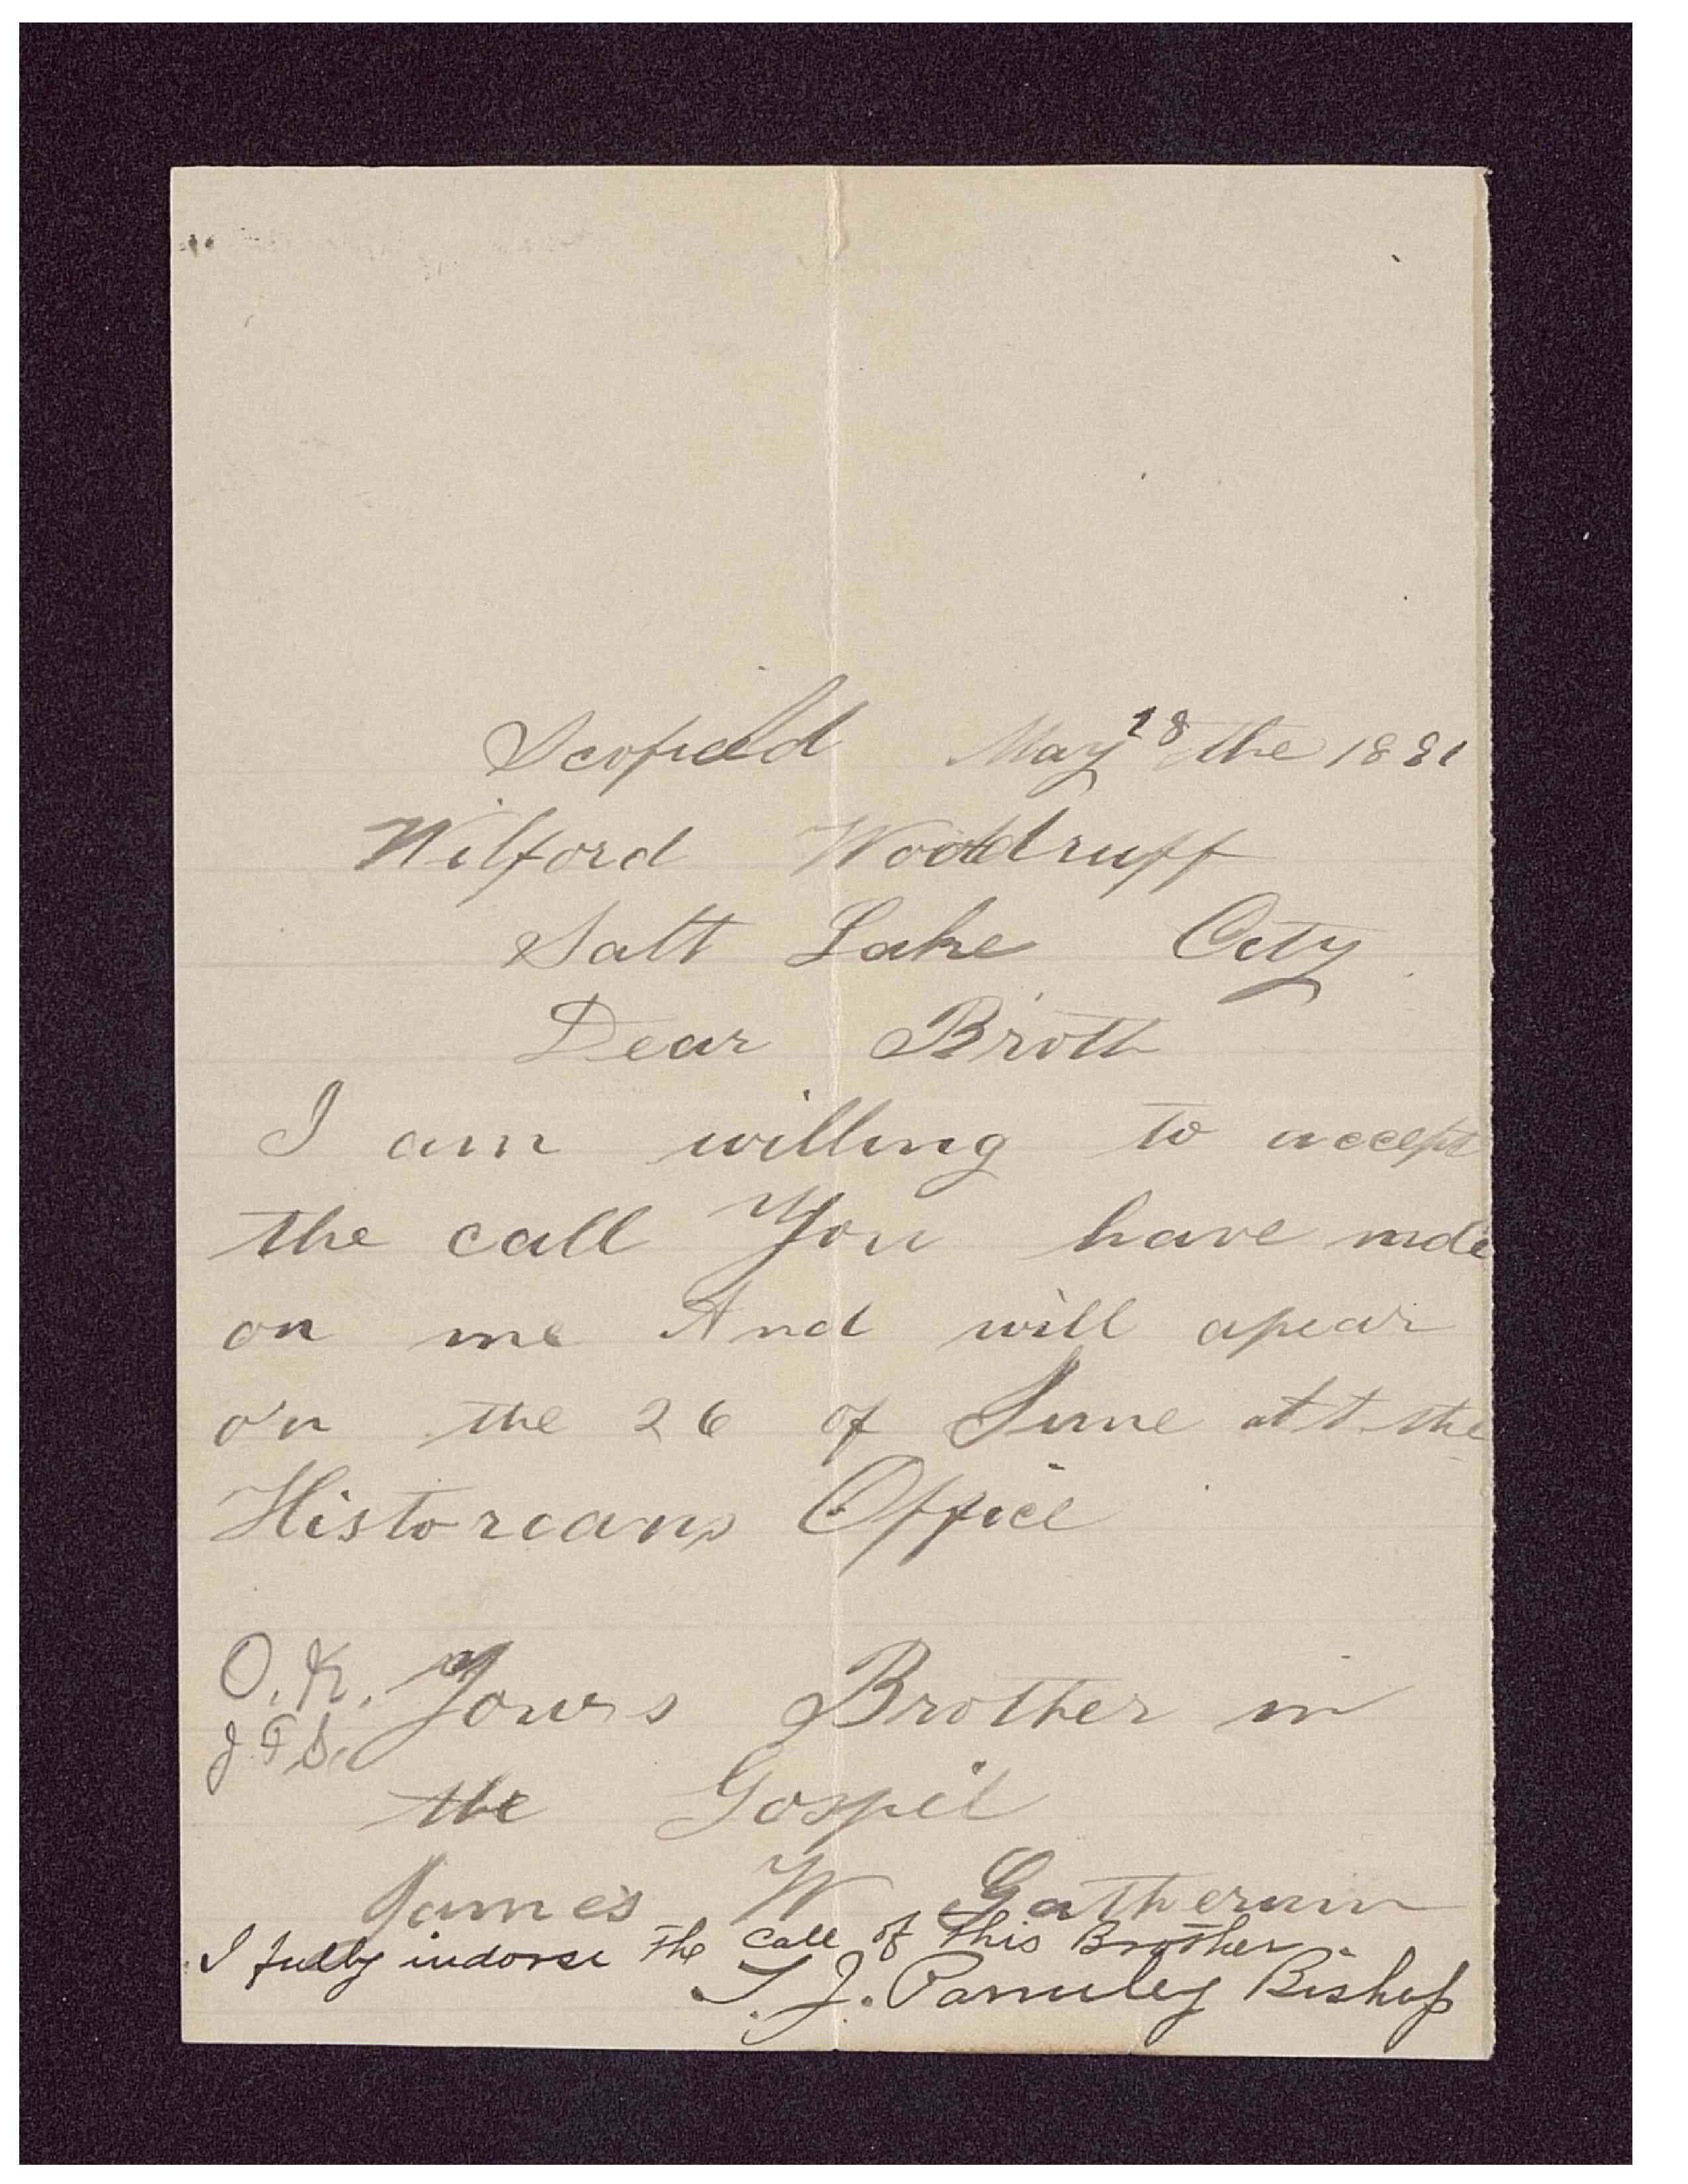 Scofield May 28 the 1891
Wilford Woodruff
Salt Lake City
Dear Broth
I am willing to accept
the call You have mde
on me And will apear
on the 26 of June att the
Historians Office
O.K. Yours Brother in
J F S.
the Gospel
James W Gatherum
I fully indorse the call of this Brother.
T. J. Parmley Bishop